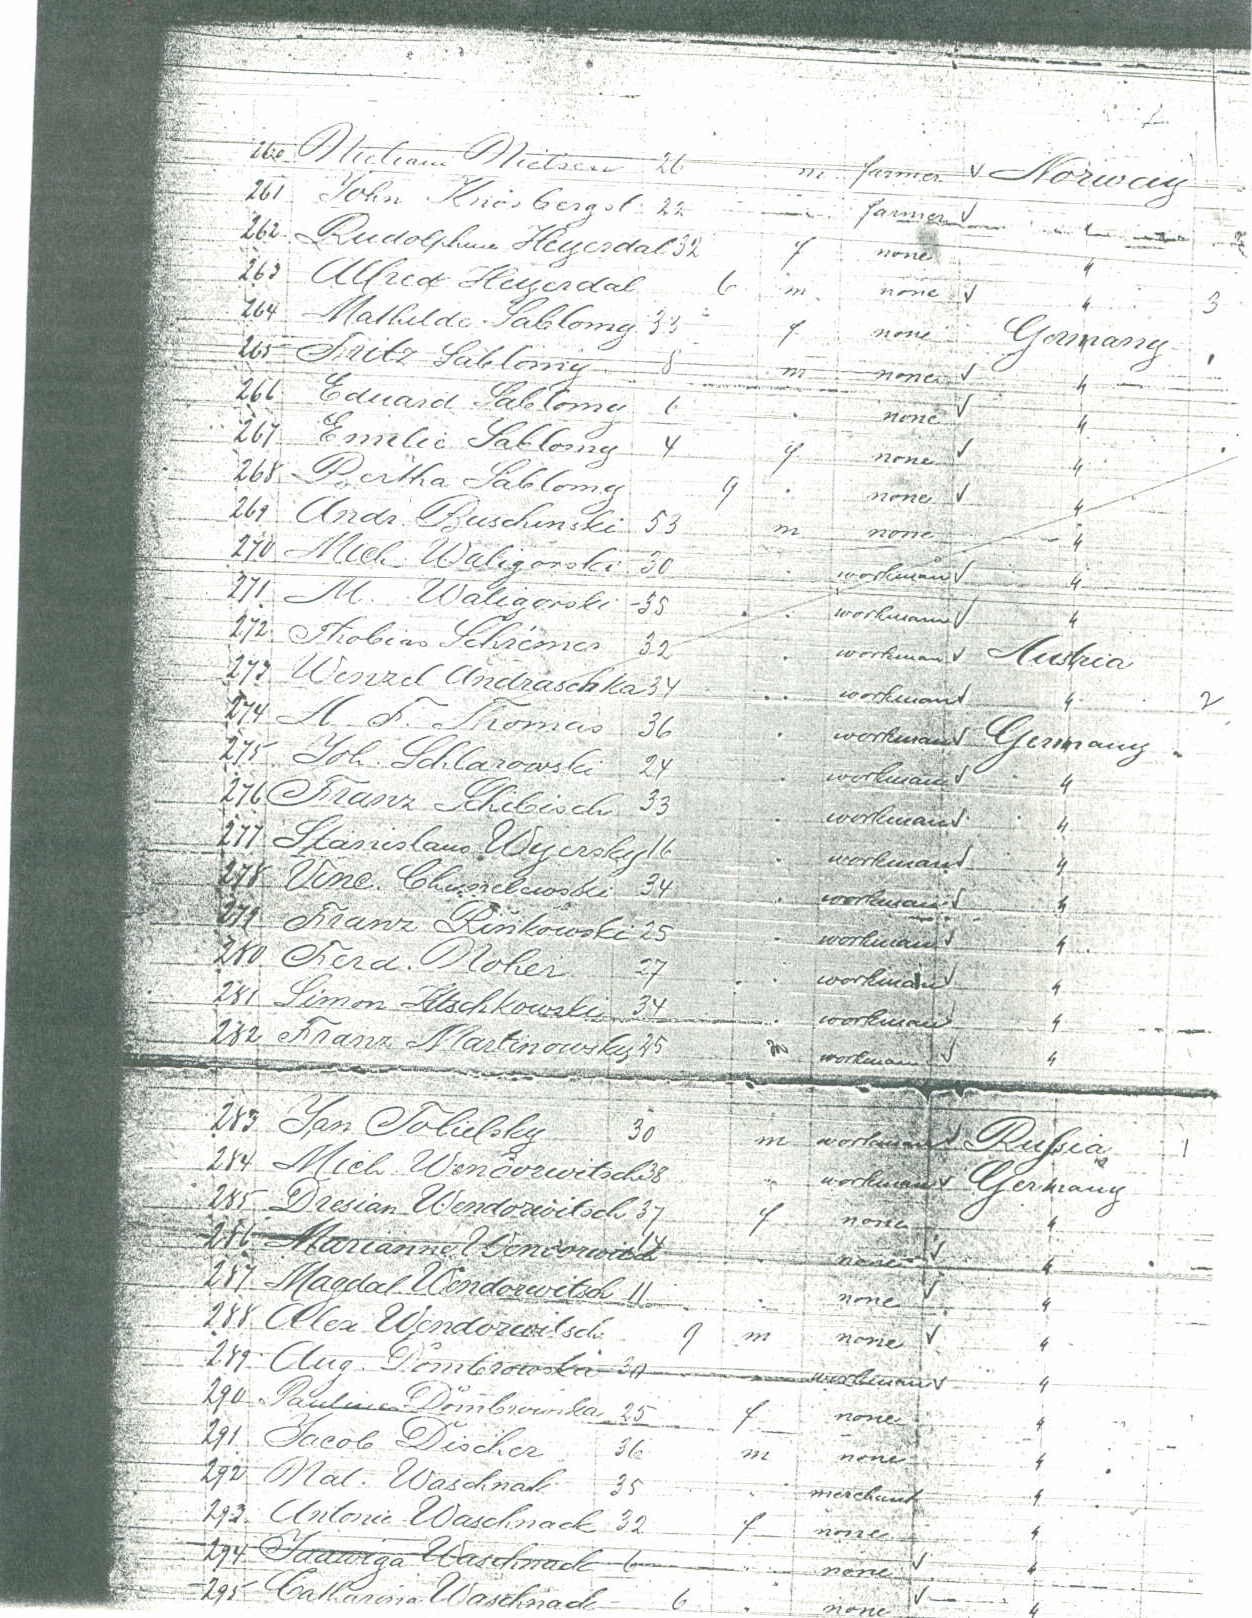 260 Nielsen 26 m farmer ✓ Norway
261 John 22 " farmer ✓ "
262 Heyerdal 32 f none "
263 Alfred Heyerdal 6 m none ✓ " 3
264 Mathilde Sablomy 33 f none Germany
265 Fritz Sablomy 8 m none ✓ "
266 Eduard Sablomy 6 . none ✓ "
267 Emilie Sablomy 4 f none ✓ "
268 Bertha Sablomy 9 . none ✓ "
269 Andr. Buschinski 53 m none "
270 Mich. Waligorski 30 workman ✓ "
271 M. Waligorski 35 . . workman ✓ "
272 Thobias 32 . workman ✓ Austria
273 Wenzel Andraschka 34 . . workman ✓ " 2
274 F. Thomas 36 . workman ✓ Germany
275 Joh. Schlarowski 24 . workman ✓ "
276 Franz Schibisch 33 . workman ✓ "
277 Stanislaus 16 . workman ✓ "
278 Vinc. 34 . workman ✓ "
279 Franz Rinkowski 25 . workman ✓ "
280 Ferd. 27 . . workman ✓ "
281 Simon 34 . workman ✓ "
282 Franz Martinowsky 45 m workman ✓ "
283 Jan 30 m workman ✓ Russia 1
284 Mich. Wendorwitsch 38 " workman ✓ Germany
285 Wendorwitsch 37 f none "
286 Marianne 14 . none ✓ "
287 Magdal. Wendorwitsch 11 . none ✓ "
288 Alex Wendorwitsch 9 m none ✓ "
289 Aug. Dombrowski workman ✓ "
290 Dombrowska 25 f none "
291 Jacob Discher 36 m none "
292 Waschnack 35 . merchant "
293 Antonie Waschnack 32 f none "
294 Jadwiga Waschnack 6 . none ✓ "
295 Catharina Waschnack 6 . none ✓ "